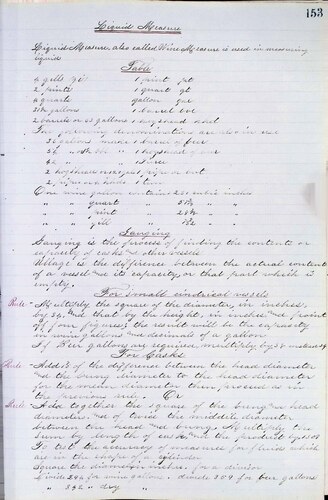 153
Liquid Measure
Liquid Measure, also called Wine Measure is used in measuring
liquid
Table
4 gills gi 1 pint pt
2 pints 1 quart qt
4 quarts gallon gal
31½ gallons 1 barrel bbl
2 barrels or 63 gallons 1 hogshead
The following denominations are also in use
36 gallons make 1 barrel of beer
54 " 1 hogshead of beer
42 " 1 tierce
2 hogsheads 1 pipe or butt
2 pipes 1 tun
One wine gallon contains 231 cubic inches
" " quart " 57¾ "
" " pint " 28⅞ "
" " gill "
Gauging
Gauging is the process of finding the contents or
capacity of casks and other vessels
Ullage is the difference between the actual contents
of a vessel and its capacity, or that part which is
empty.
For small cylindrical vessels
Rule Multiply the square of the diameter, in inches,
by 34, and that by the height, in inches and point
off four figures; the result will be the capacity
in wine gallons and decimals of a gallon
If Beer gallons are required multiply by 28 instead of 34
For Casks
Rule Add ⅔ of the difference between the head diameter
and the bung diameter to the head diameter
for the mean diameter then proceed as in
the previous rule. Or
Rule Add together the square of the bung and head
diameters and of twice the middle diameter
between the head and bung. Multiply the
sum by length of cask and the product by
To test the accuracy of measures for fluids which
are in the shape of a cylinder
Square the diameter in inches for a divisor
Divide 294 for wine gallons, divide 359 for beer gallons
" 342 " dry "